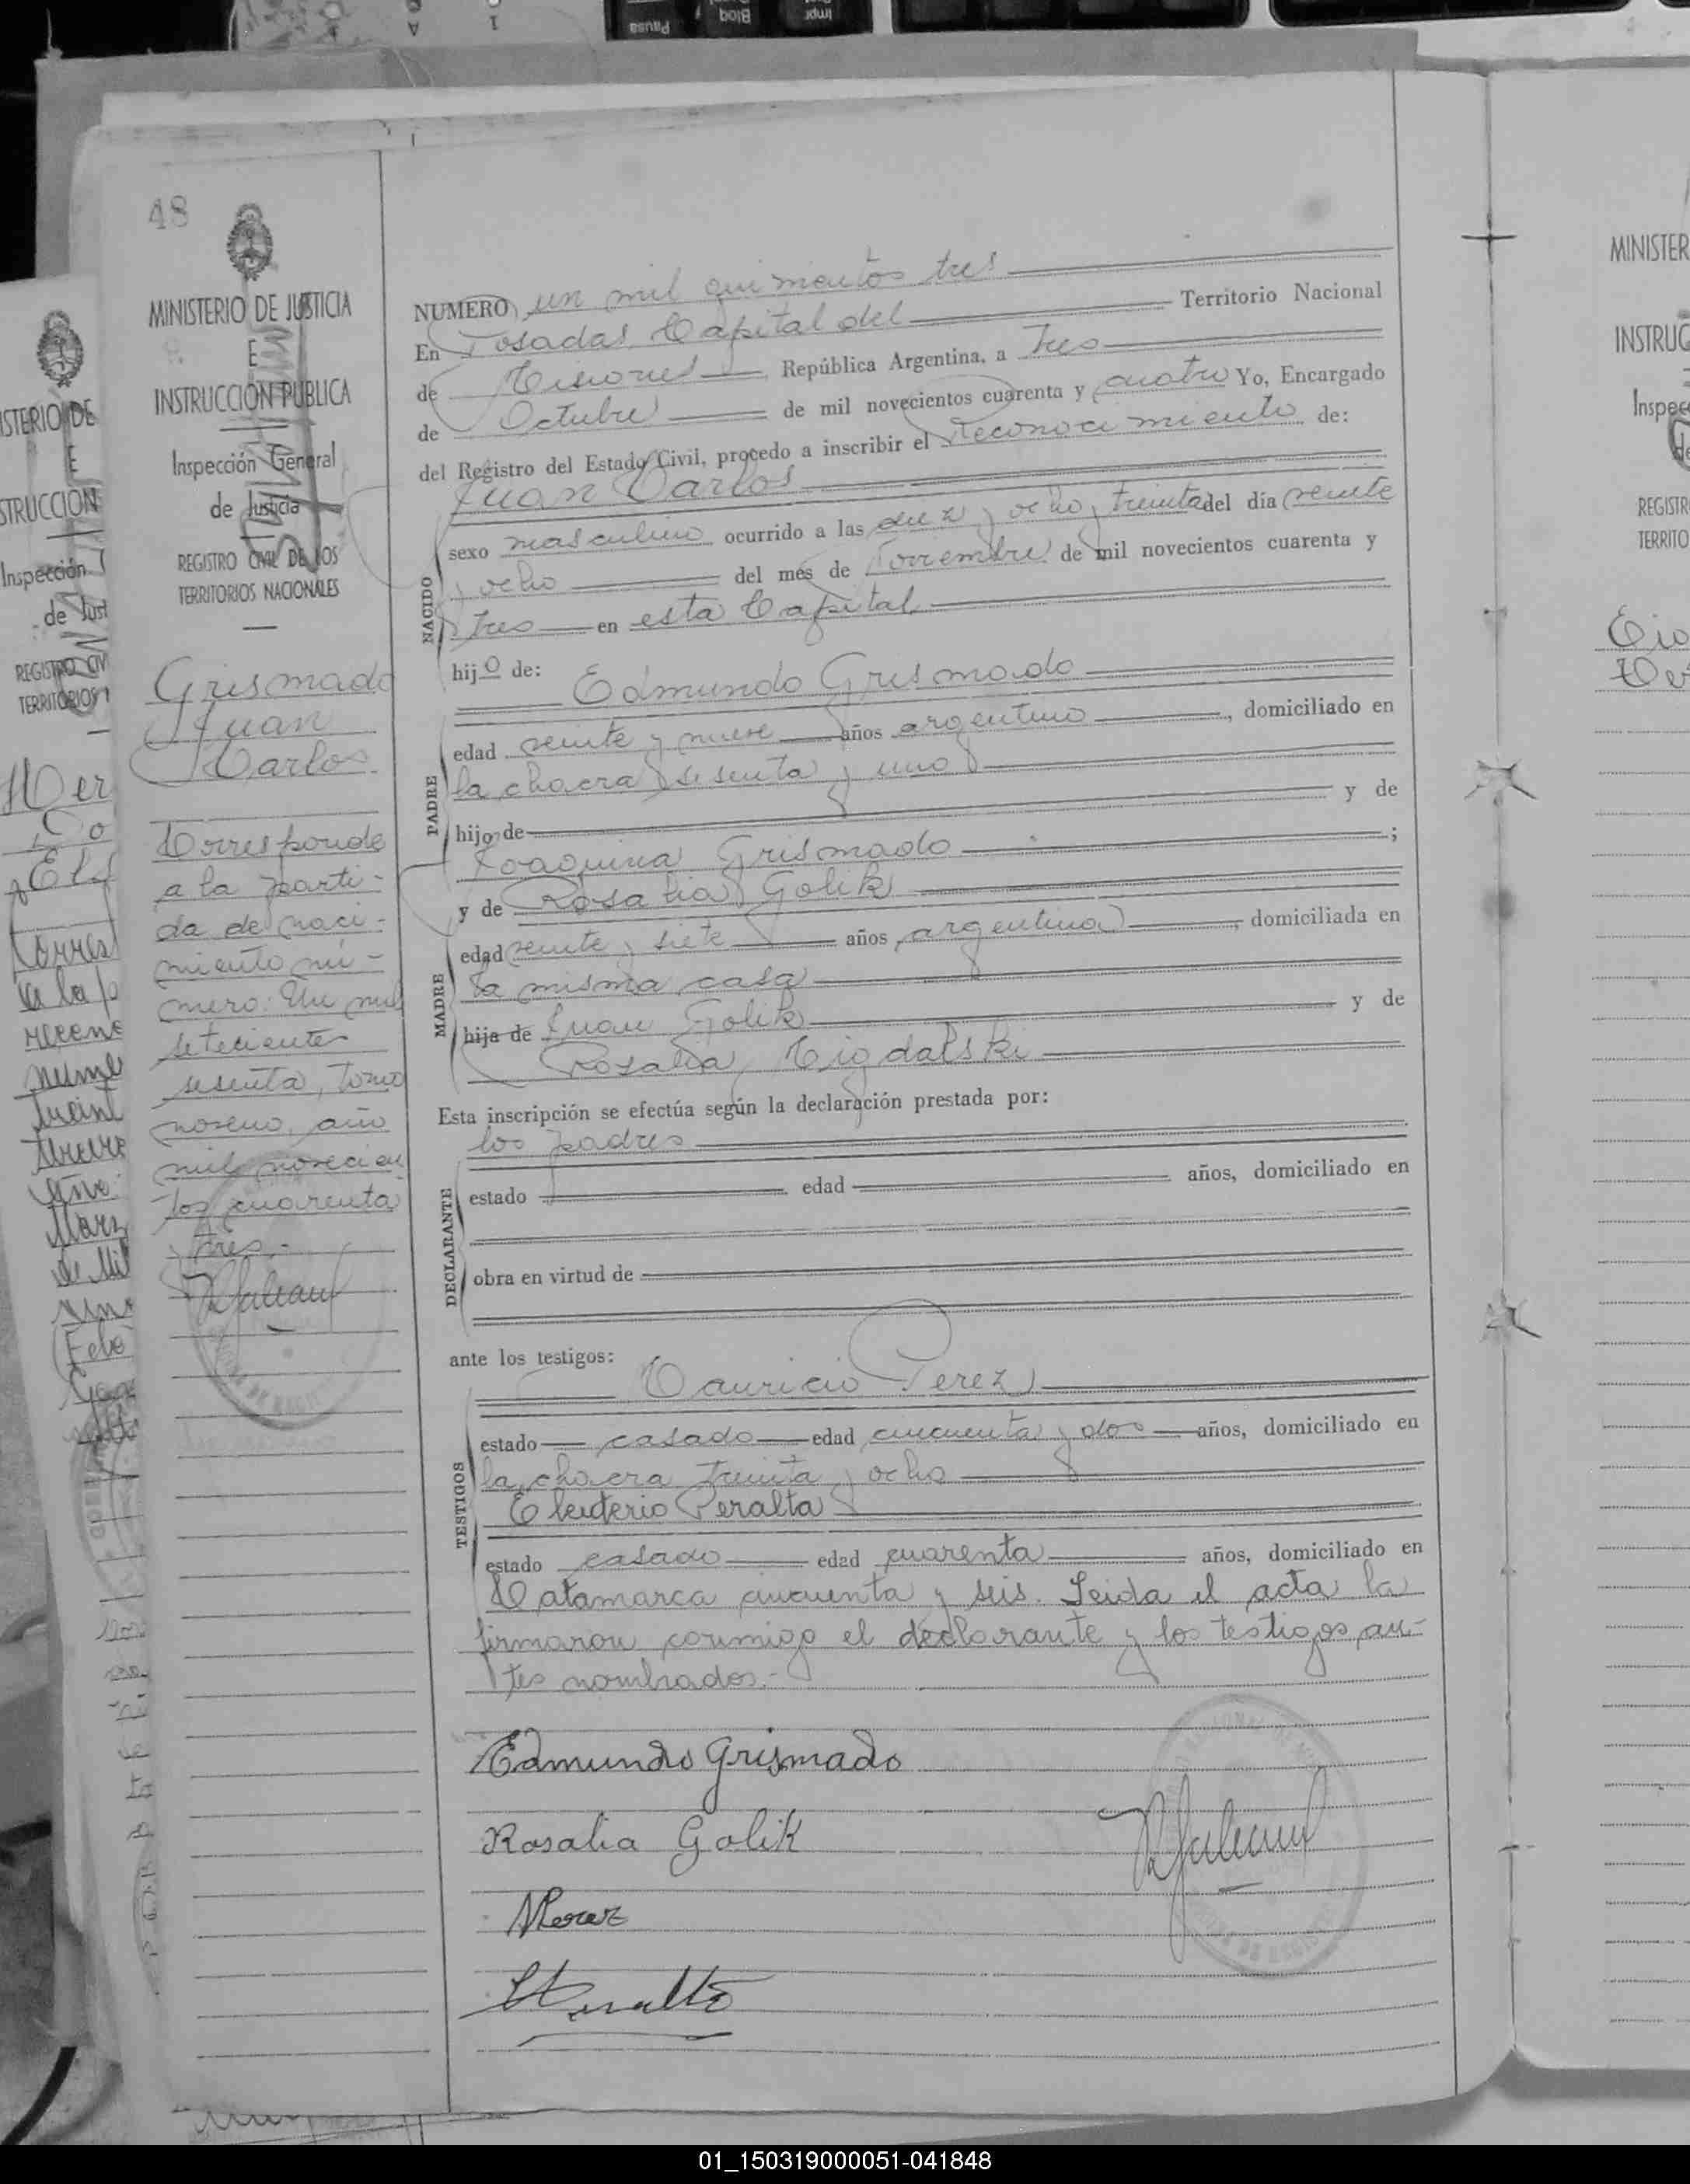 48
MINISTERIO DE JUSTICIA
E
INSTRUCCION PUBLICA
Inspección General
de Justicia
REGISTRO CIVIL DE LOS
TERRITORIOS NACIONALES
Grismado
Juan
Carlos
Corresponde
a la parti-
da de naci-
miento nú-
mero: Un mil
setecientos
sesenta, tomo
noveno, año
mil novecien
tos cuarenta
y tres.-
NUMERO un mil quinientos tres
En Posadas Capital del Territorio Nacional
de Misiones República Argentina, a Tres
de Octubre de mil novecientos cuarenta y cuatro Yo, Encargado
del Registro del Estado Civil, procedo a inscribir el Reconocimiento de:
Juan Carlos
NACIDO
sexo masculino ocurrido a las diez y ocho y treinta del día veinte
y ocho del mes de Noviembre de mil novecientos cuarenta y
tres en esta Capital
hijo de: Edmundo Grismado
PADRE
edad veinte y nueve años argentino, domiciliado en
la chacra sesenta y uno
hijo de y de
Joaquina Grismado ;
y de Rosalia Golik
MADRE
edad veinte y siete años argentina, domiciliada en
la misma casa
hija de Juan Golik y de
Rosalia Migdalski
Esta inscripción se efectúa según la declaración prestada por:
los padres
DECLARANTE
estado edad años, domiciliado en
obra en virtud de
ante los testigos:
Mauricio Perez
TESTIGOS
estado casado edad cincuenta y dos años, domiciliado en
la chacra treinta y ocho
Eleuterio Peralta
estado casado edad cuarenta años, domiciliado en
Catamarca cincuenta y seis. Leida el acta la
firmaron conmigo el declarante y los testigos an-
tes nombrados.-
Edmundo Grismado
Rosalia Golik
MPerez
EPeralta
01_150319000051-041848